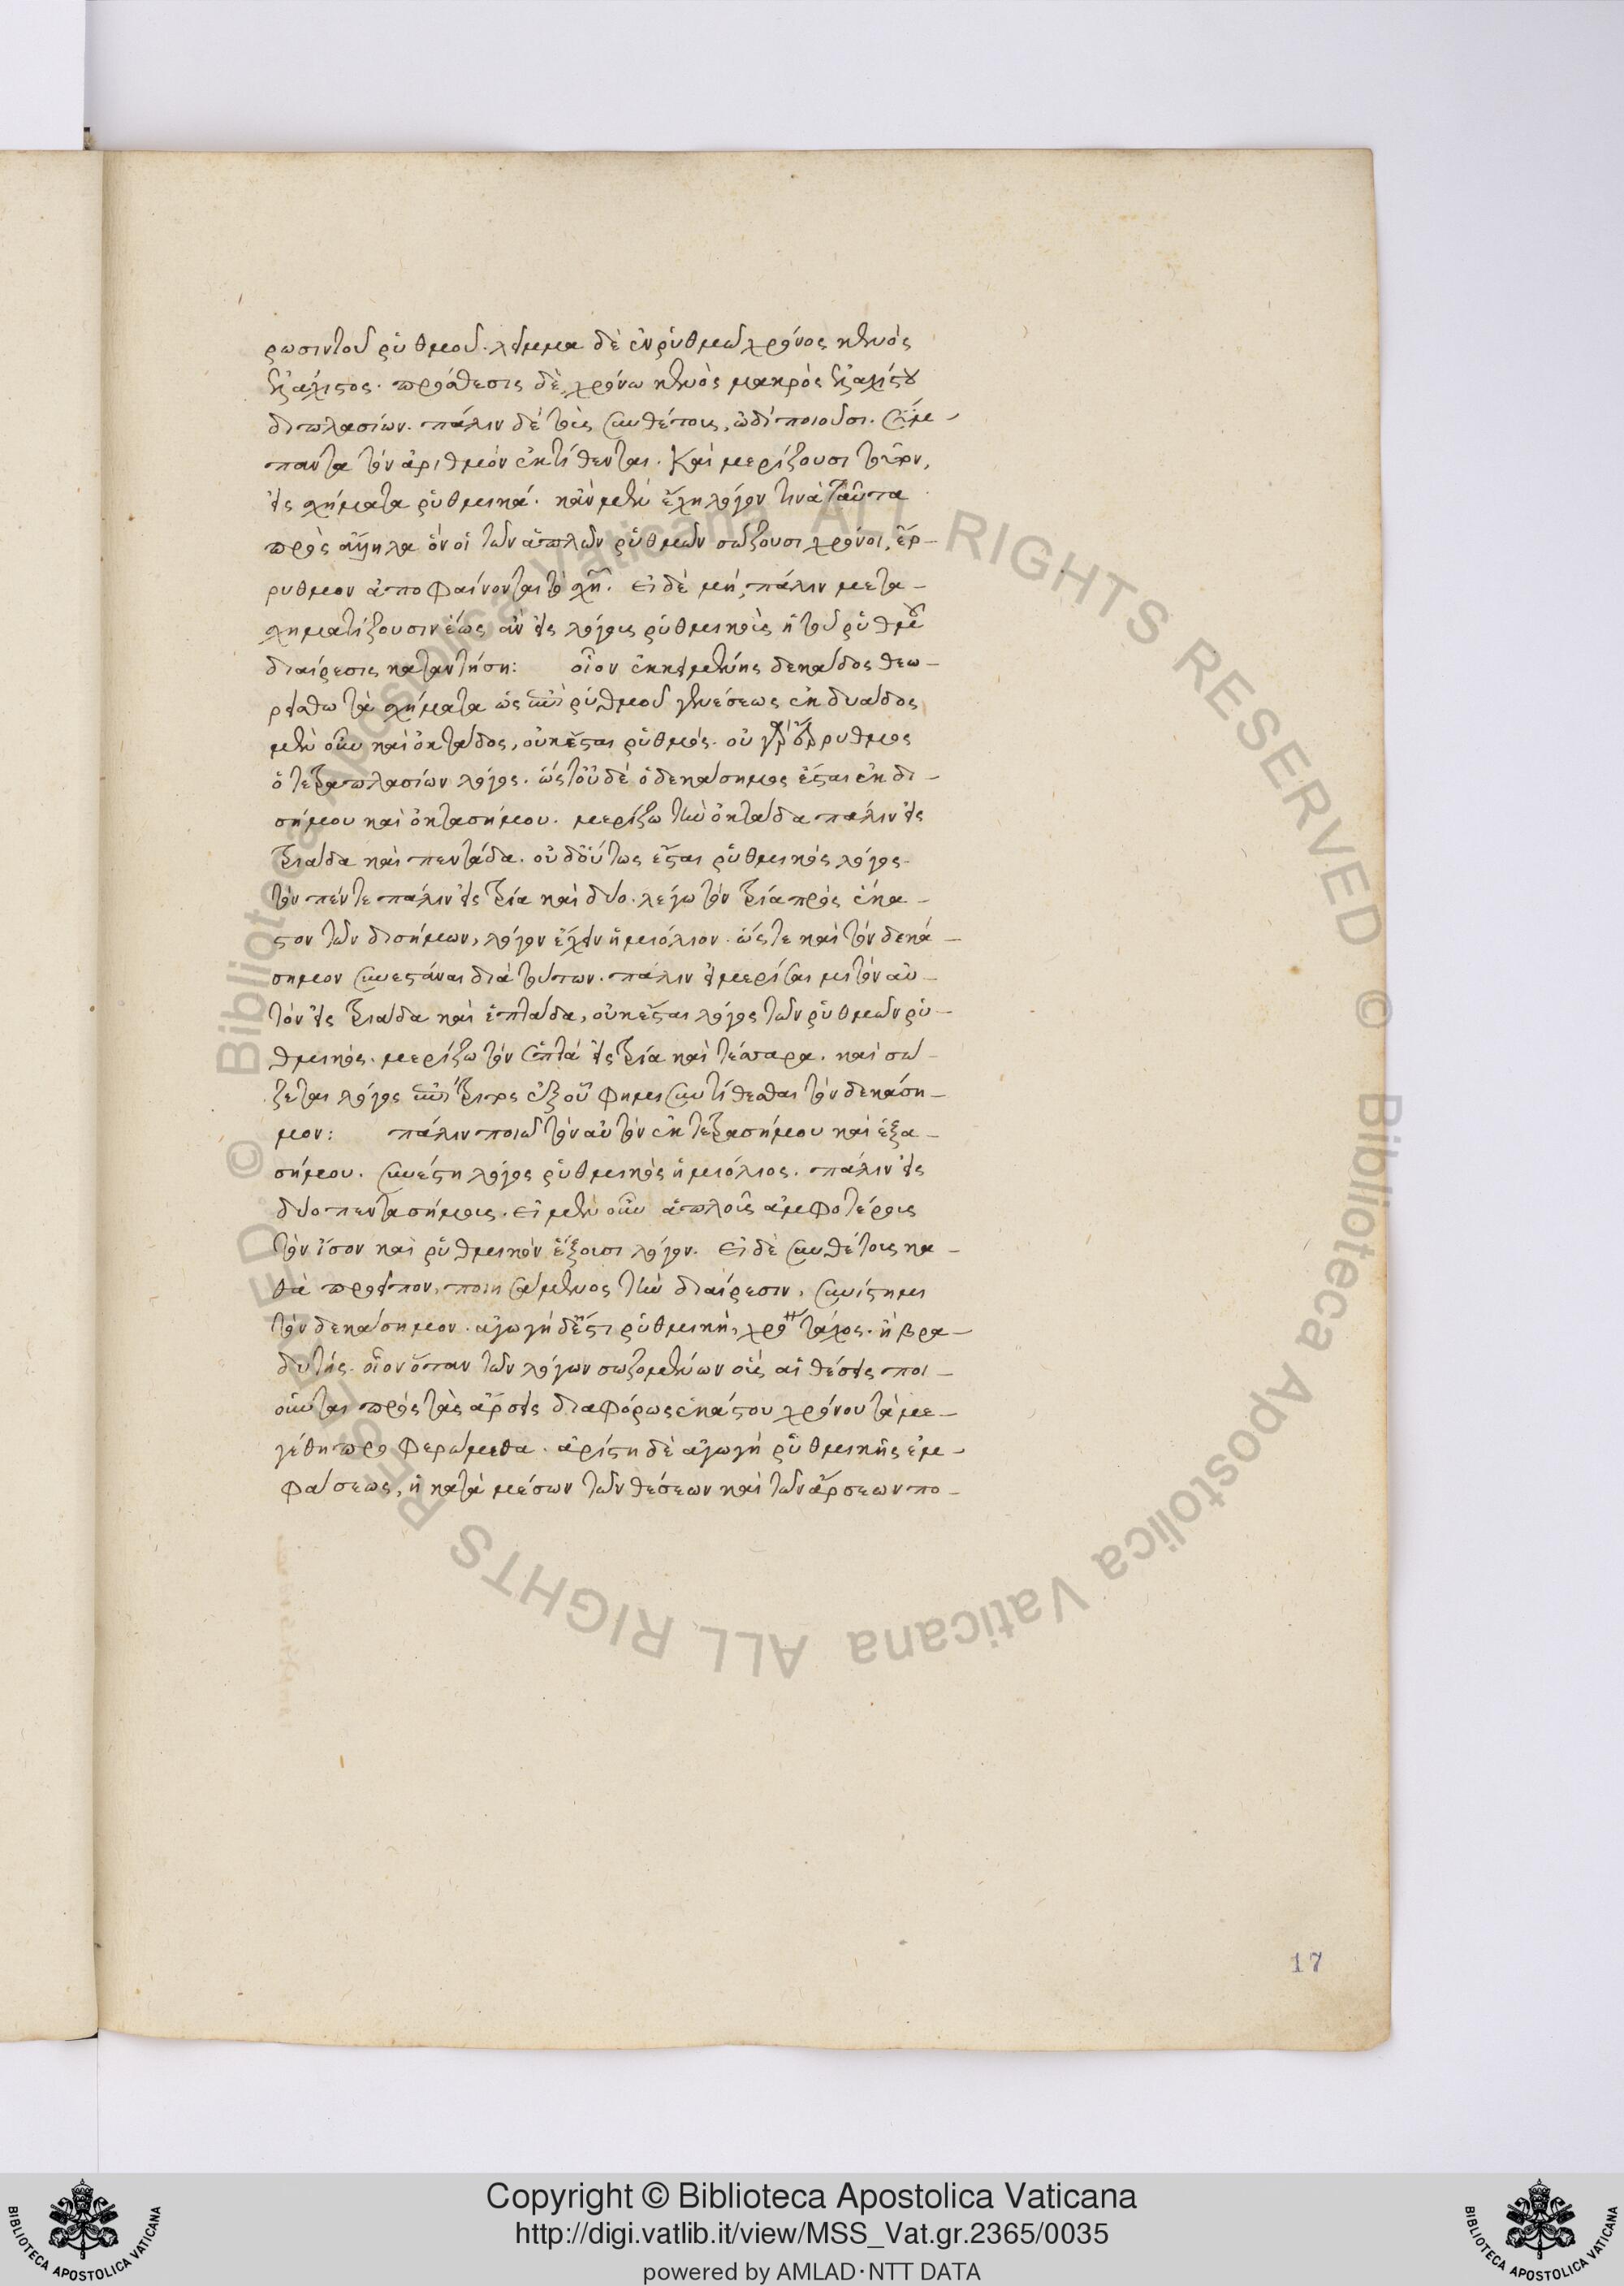 ρωσιν τοῦ ῥυθμοῦ. λεῖμμα δὲ ἐν ῥυθμῶ χρόνος κενὸς
ἐλάχιστος. πρόσθεσις δὲ, χρόνω κενὸς μακρὸς ἐλαχίστου
διπλασίων. πάλιν δὲ τοὺς συνθέτους, ὡδὶ ποιοῦσι. σύμ-
παντα τὸν ἀριθμὸν ἐκτίθενται. Καὶ μερίζουσι τοῦτον,
εἰς σχήματα ῥυθμικά. κἂν μὲν ἔχη λόγον τινὰ ταῦτα
πρὸς ἄλληλα ὃν οἱ τῶν ἁπλῶν ῥυθμῶν σώζουσι χρόνοι, ἔρ-
ρυθμον ἀποφαίνονται τὸ σχῆ. εἰ δὲ μή, πάλιν μετα-
σχηματίζουσιν ἕως ἂν εἰς λόγους ῥυθμικοὺς ἡ τοῦ ῥυθμοῦ
διαίρεσις καταντήση: οἷον ἐκκειμένης δεκάδος θεω-
ρείσθω τὰ σχήματα ὡς ἐπὶ ῥυθμοῦ γενέσεως ἐκ δυάδος
μὲν οὖν καὶ ὀκτάδος, οὐκ ἔσται ῥυθμός. οὐ γὰρ ἔρρυθμος
ὁ τετραπλασίων λόγος. ὥστ' οὐδὲ ὁ δεκάσημος ἔσται ἐκ δι-
σήμου καὶ ὀκτασήμου. μερίζω τὴν ὀκτάδα πάλιν εἰς
τριάδα καὶ πεντάδα. οὐδ' οὕτως ἔσται ῥυθμικὸς λόγος.
τὸν πέντε πάλιν εἰς τρία καὶ δύο. λέγω τὸν τρία πρὸς ἕκα-
στον τῶν δισήμων, λόγον ἔχειν ἡμιόλιον. ὥστε καὶ τὸν δεκά-
σημον συνεστάναι διὰ τούτων. πάλιν εἰ μερίσαιμι τὸν αὐ-
τὸν εἰς τριάδα καὶ ἑπτάδα, οὐκ ἔσται λόγος τῶν ῥυθμῶν ῥυ-
θμικός. μερίζω τὸν ἑπτὰ εἰς τρία καὶ τέσσαρα. καὶ σώ-
ζεται λόγος ἐπίτριτος ἐξ οὗ φημι συντίθεσθαι τὸν δεκάση-
μον: πάλιν ποιῶ τὸν αὐτὸν ἐκ τετρασήμου καὶ ἑξα-
σήμου. συνέστη λόγος ῥυθμικὸς ἡμιόλιος. πάλιν εἰς
δύο πεντασήμους. εἰ μὲν οὖν ἁπλοῖς ἀμφοτέροις
τὸν ἴσον καὶ ῥυθμικὸν ἕξουσι λόγον. εἰ δὲ συνθέτοις κα-
θὰ προεῖπον, ποιησάμενος τὴν διαίρεσιν, συνίστημι
τὸν δεκάσημον. ἀγωγὴ δέ ἐστι ῥυθμική, χρό τάχος. ἢ βρα-
δυτής. οἷον ὅταν τῶν λόγων σωζομένων οὓς αἱ θέσεις ποι-
οῦνται πρὸς τὰς ἄρσεις διαφόρως ἑκάστου χρόνου τὰ με-
γέθη προφερώμεθα. ἀρίστη δὲ ἀγωγὴ ῥυθμικῆς ἐμ-
φάσεως, ἡ κατὰ μέσων τῶν θέσεων καὶ τῶν ἄρσεων πο-
17
Copyright © Biblioteca Apostolica Vaticana
http://digi.vatlib.it/view/MSS_Vat.gr.2365/0035
powered by AMLAD·NTT DATA